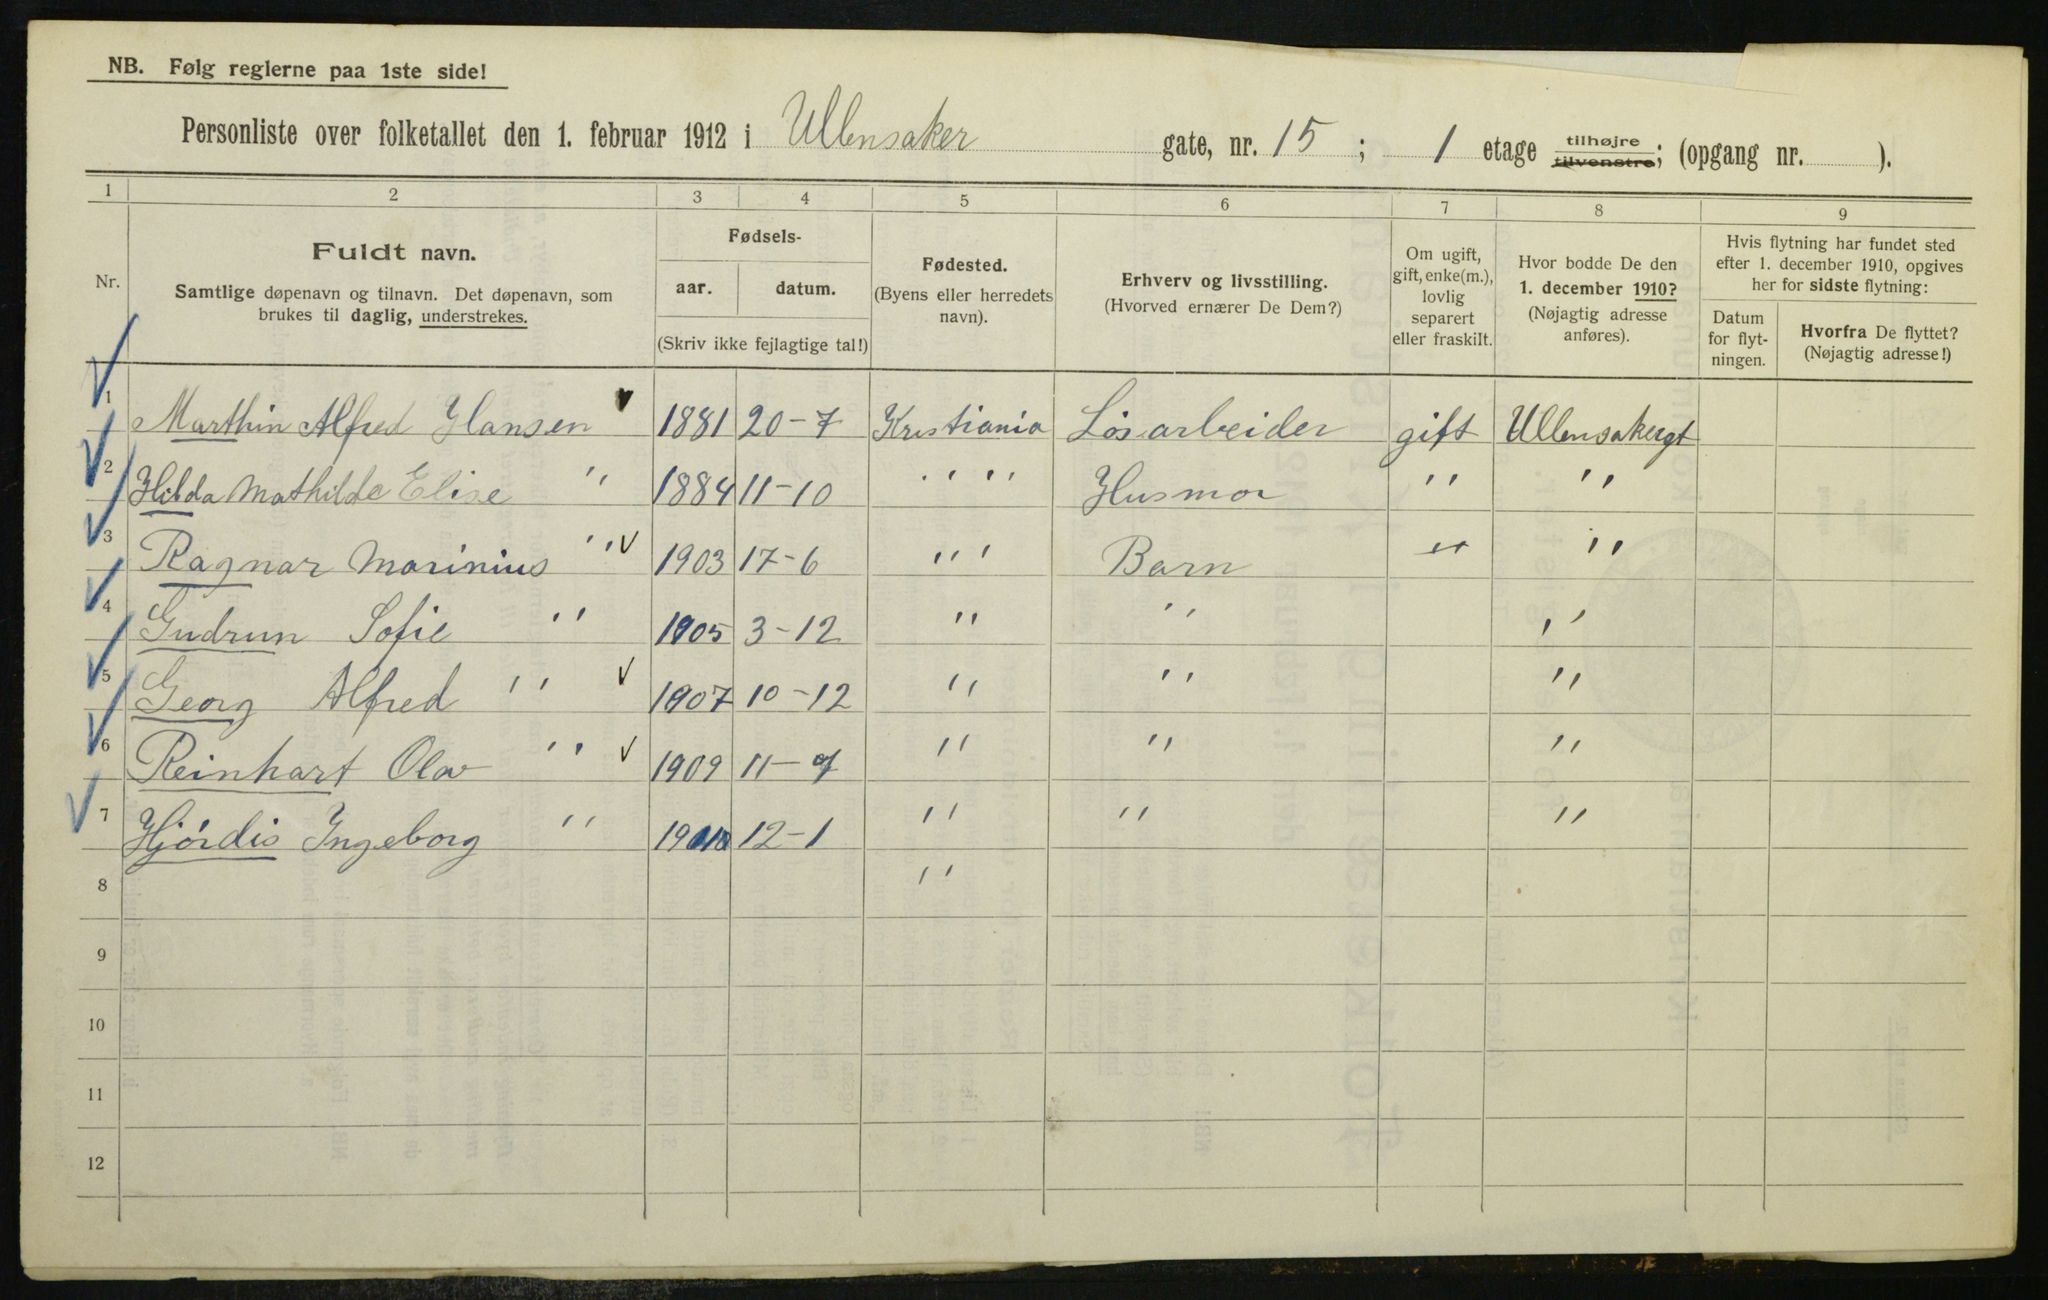 NB. Følg reglerne paa 1ste side!
Personliste over folketallet den 1. februar 1912 i Ullensaker gate, nr. 15 ; 1 etage tilhøjre tilvenstre; (opgang nr. ).
1 2 3 4 5 6 7 8 9
Nr.
Fuldt navn.
Samtlige døpenavn og tilnavn. Det døpenavn, som
brukes til daglig, understrekes.
Fødsels-
aar. datum.
(Skriv ikke fejlagtige tal!)
Fødested.
(Byens eller herredets
navn).
Erhverv og livsstilling.
(Hvorved ernærer De Dem?)
Om ugift,
gift, enke(m.),
lovlig
separert
eller fraskilt.
Hvor bodde De den
1. december 1910?
(Nøjagtig adresse
anføres).
Hvis flytning har fundet sted
efter 1. december 1910, opgives
her for sidste flytning:
Datum
for flyt-
ningen.
Hvorfra De flyttet?
(Nøjagtig adresse!)
1 Marthin Alfred Hansen 1881 20-7 Kristiania Løsarbeider gift Ullensakergt
2 Hilda Mathilde Elise " 1884 11-10 " " Husmor " "
3 Ragnar Marinius " 1903 17-6 " " Barn " "
4 Gudrun Sofie " 1905 3-12 " " "
5 Georg Alfred " 1907 10-12 " " "
6 Reinhart Olav " 1909 11-9 " " "
7 Hjørdis Ingeborg " 12-1 " " "
8 "
9
10
11
12